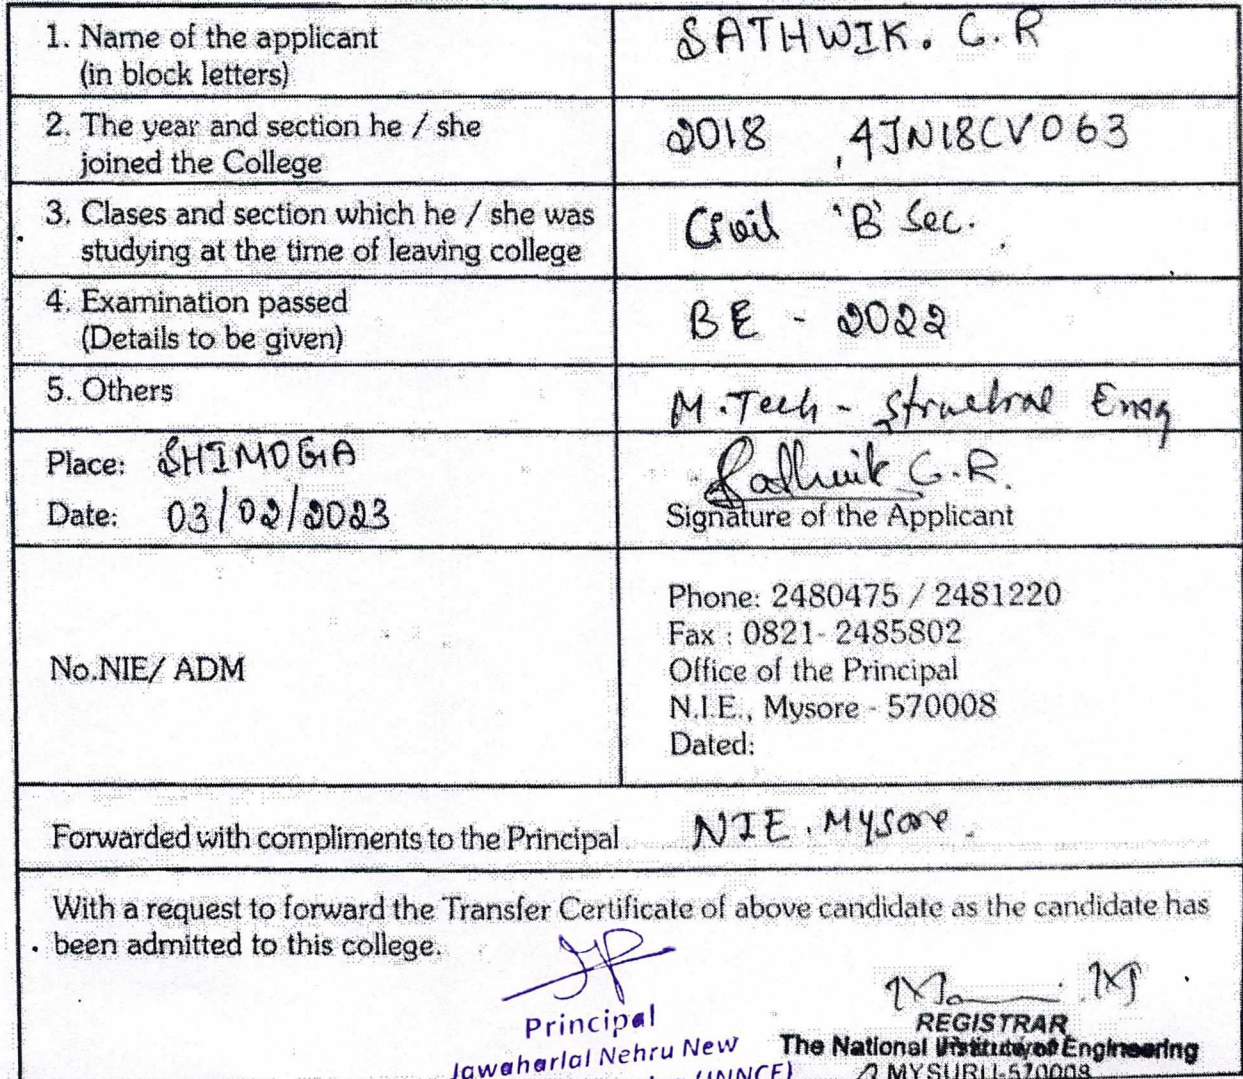 1. Name of the applicant
(in block letters)
SATHWIK. G. R
2. The year and section he / she
joined the College
2018 , 4JN18CV063
3. Clases and section which he / she was
studying at the time of leaving college
Civil 'B' Sec.
4. Examination passed
(Details to be given)
BE - 2022
5. Others
M.Tech - Structral Engg
Place: SHIMOGA
Date: 03/02/2023
Sathwik G.R.
Signature of the Applicant
No.NIE/ ADM
Phone: 2480475 / 2481220
Fax : 0821- 2485802
Office of the Principal
N.I.E., Mysore - 570008
Dated:
Forwarded with compliments to the Principal NIE. Mysore.
With a request to forward the Transfer Certificate of above candidate as the candidate has
been admitted to this college.
Principal
Jawaharlal Nehru New
(JNNCE)
REGISTRAR
The National Institute of Engineering
MYSURU-570008